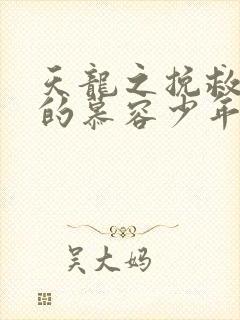 天龍之挽救
的慕容少年
吴大妈